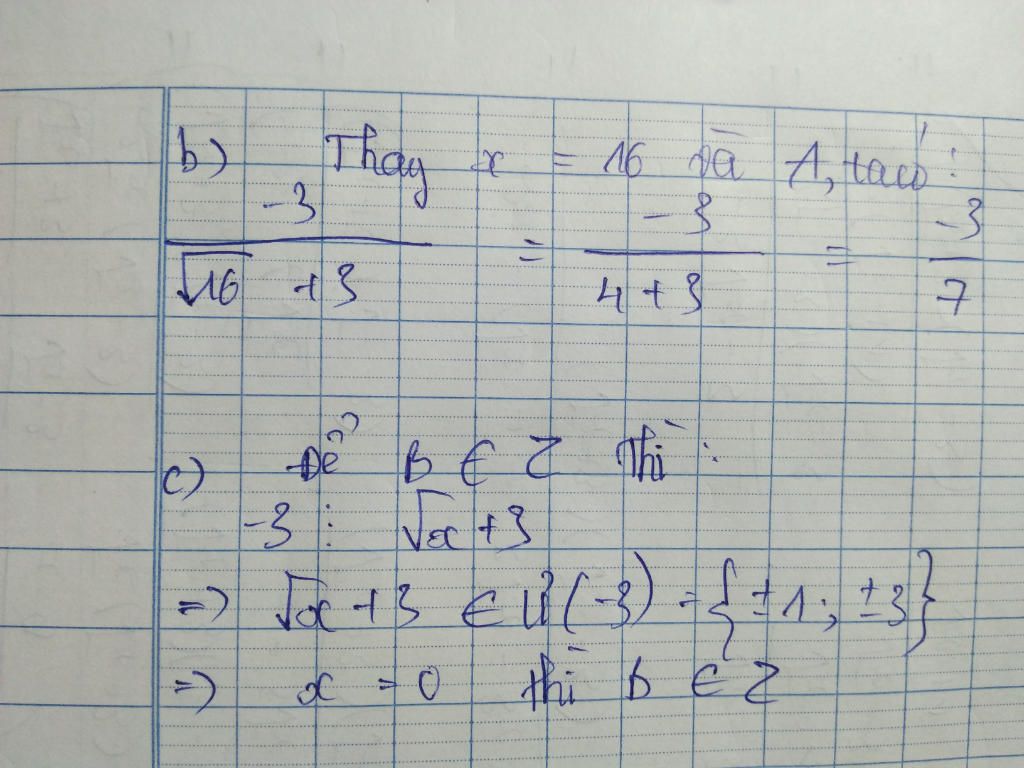 b) Thay x = 16 vào A, ta có:
-3 / (√16 + 3) = -3 / (4 + 3) = -3 / 7
c) Để B ∈ Z thì:
-3 ⋮ √x + 3
=> √x + 3 ∈ Ư(-3) = {±1; ±3}
=> x = 0 thì B ∈ Z